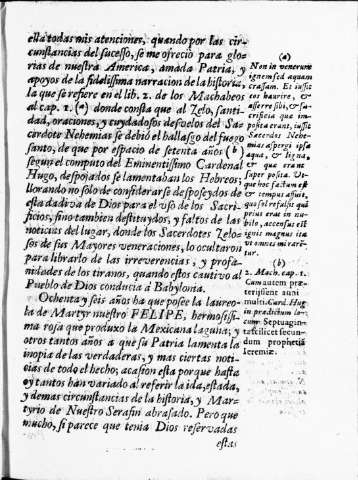 ella todas mis atenciones, quando por las cir-
cunstancias del sucesso, se me ofreciò para glo-
rias de nuestra America, amada Patria, y
apoyos de la fidelissima narracion de la historia,
la que se refiere en el lib. 2. de los Machabeos
al cap. 1. (a) donde consta que al Zelo, santi-
dad, oraciones, y cuydadosos desvelos del Sa-
cerdote Nehemias se debiò el hallasgo del fuego
santo, de que por espacio de setenta años (b)
segun el computo del Eminentissimo Cardenal
Hugo, despojados se lamentaban los Hebreos;
llorando no solo de considerarse desposeydos de
esta dadiva de Dios para el vso de los Sacri-
ficios, sino tambien destituydos, y faltos de las
noticias del lugar, donde los Sacerdotes Zelo-
sos de sus Mayores veneraciones, lo ocultaron
para librarlo de las irreverencias, y profa-
nidades de los tiranos, quando estos cautivo al
Pueblo de Dios conducia à Babylonia.
Ochenta y seis años ha que posee la laureo-
la de Martyr nuestro FELIPE, hermosissi-
ma rosa que produxo la Mexicana laguna; y
otros tantos años a que su Patria lamenta la
inopia de las verdaderas, y mas ciertas noti-
cias de todo el hecho; acasion esta porque hasta
oy tantos han variado al referir la ida, estada,
y demas circunstancias de la historia, y Mar-
tyrio de Nuestro Serafin abrasado. Pero que
mucho, si parece que tenia Dios reservadas
estas
(a)
Non in venerunt
ignem sed aquam
crassam. Et iussit
eos haurire, &
afferre sibi, & sa-
crificia que im-
posita erant, iussit
Sacerdos Nehe-
mias aspergi ipsa
aqua, & ligna,
& que erant
super posita. Vt-
que hoc factum est
& tempus afuit,
quo sol refulsit qui
prius erat in nu-
bilo, accensus est
ignis magnus ita
vt omnes mirarē-
tur.
(b)
2. Mach. cap. 1.
Cum autem præ-
teriissent anni
multi. Card. Hug
in prædictum lo-
cum Septuagin-
ta scilicet secun-
dum prophetia
Ieremiæ.